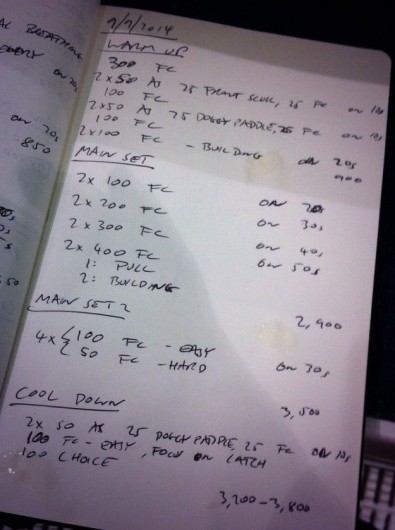 AL BREATHING
ON 20s
850
50
9/9/2014
WARM UP
300 FC
2x50 AS 25 FRONT SCULL, 25 FC ON 10s
100 FC
2x50 AS 25 DOGGY PADDLE, 25 FC ON 10s
100 FC
2x100 FC - BUILDING ON 20s
900
MAIN SET
2x 100 FC ON 20s
2x 200 FC ON 30s
2x 300 FC ON 40s
2x 400 FC ON 50s
1: PULL
2: BUILDING
2,900
MAIN SET 2
4x { 100 FC - EASY
50 FC - HARD ON 30s
3,500
COOL DOWN
2x 50 AS 25 DOGGY PADDLE, 25 FC ON 10s
100 FC - EASY, FOCUS ON CATCH
100 CHOICE
3,200-3,800